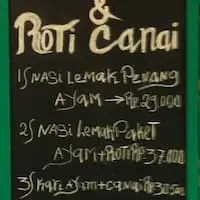 &
Roti Canai
1) NASI Lemak Penang
AYAM → Rp 29.000
2) NASI Lemak Paket
AYAM + ROTI Rp 37.000
3) Kari AYAM + canai Rp 30.500